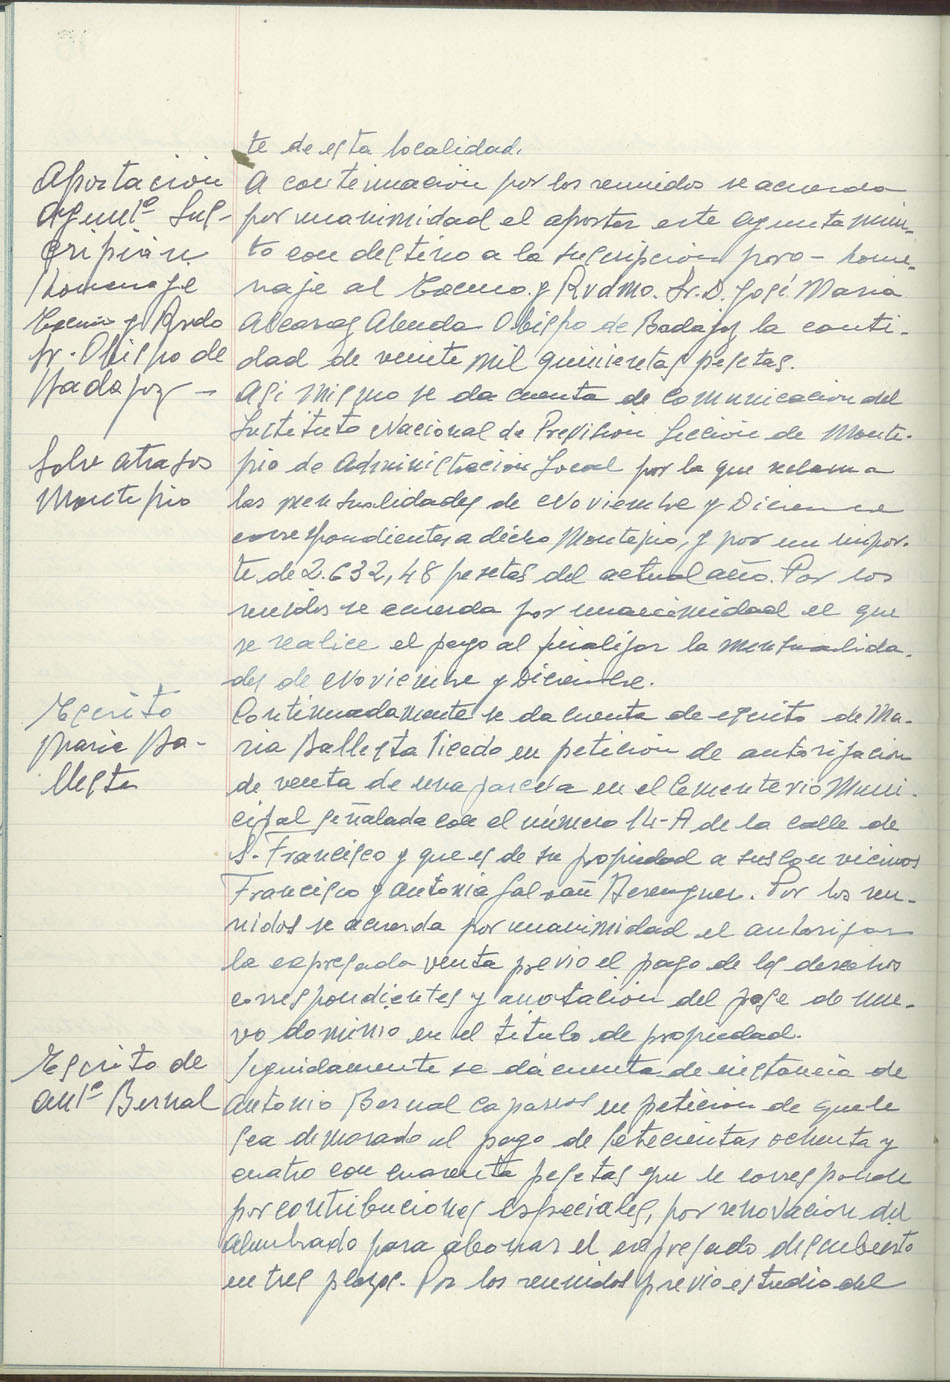 te de esta localidad.
Aportación
Ayuntº Sus-
cripción
homenaje
Excmo y Rvdo
Sr. Obispo de
Badajoz —
A continuacion por los reunidos se acuerda
por unanimidad el aportar este Ayuntamien-
to con destino a la suscripcion pro-home-
naje al Excmo. y Rvdmo. Sr. D. José Maria
Alcaraz Alenda Obispo de Badajoz la canti-
dad de veinte mil quinientas pesetas.
Solre atrasos
Montepio
Asi mismo se da cuenta de comunicacion del
Instituto Nacional de Prevision Seccion de Monte-
pio de Administracion Local por la que reclama
las mensualidades de Noviembre y Diciembre
correspondientes a dicho Montepio, y por un impor-
te de 2.632,48 pesetas del actual año. Por los
reunidos se acuerda por unanimidad el que
se realice el pago al finalizar la mensualida-
des de Noviembre y Diciembre.
Escrito
Maria Ba-
llesta
Continuadamente se da cuenta de escrito de Ma-
ria Ballesta Vicedo en peticion de autorizacion
de venta de una parcela en el Cementerio Muni-
cipal señalada con el número 14-A de la calle de
S. Francisco y que es de su propiedad a sus convicinos
Francisco y Antonia Galvañ Berenguer. Por los reu-
nidos se acuerda por unanimidad el autorizar
la expresada venta previo el pago de los derechos
correspondientes y anotacion del pase de nue-
vo dominio en el titulo de propiedad.
Escrito de
Antº Bernal
Seguidamente se dá cuenta de instancia de
Antonio Bernal Caparros en peticion de que le
sea demorado el pago de setecientas ochenta y
cuatro con cuarenta pesetas que le corresponde
por contribuciones especiales, por renovacion del
Alumbrado para abonar el expresado descubierto
en tres plazos. Por los reunidos previo estudio del